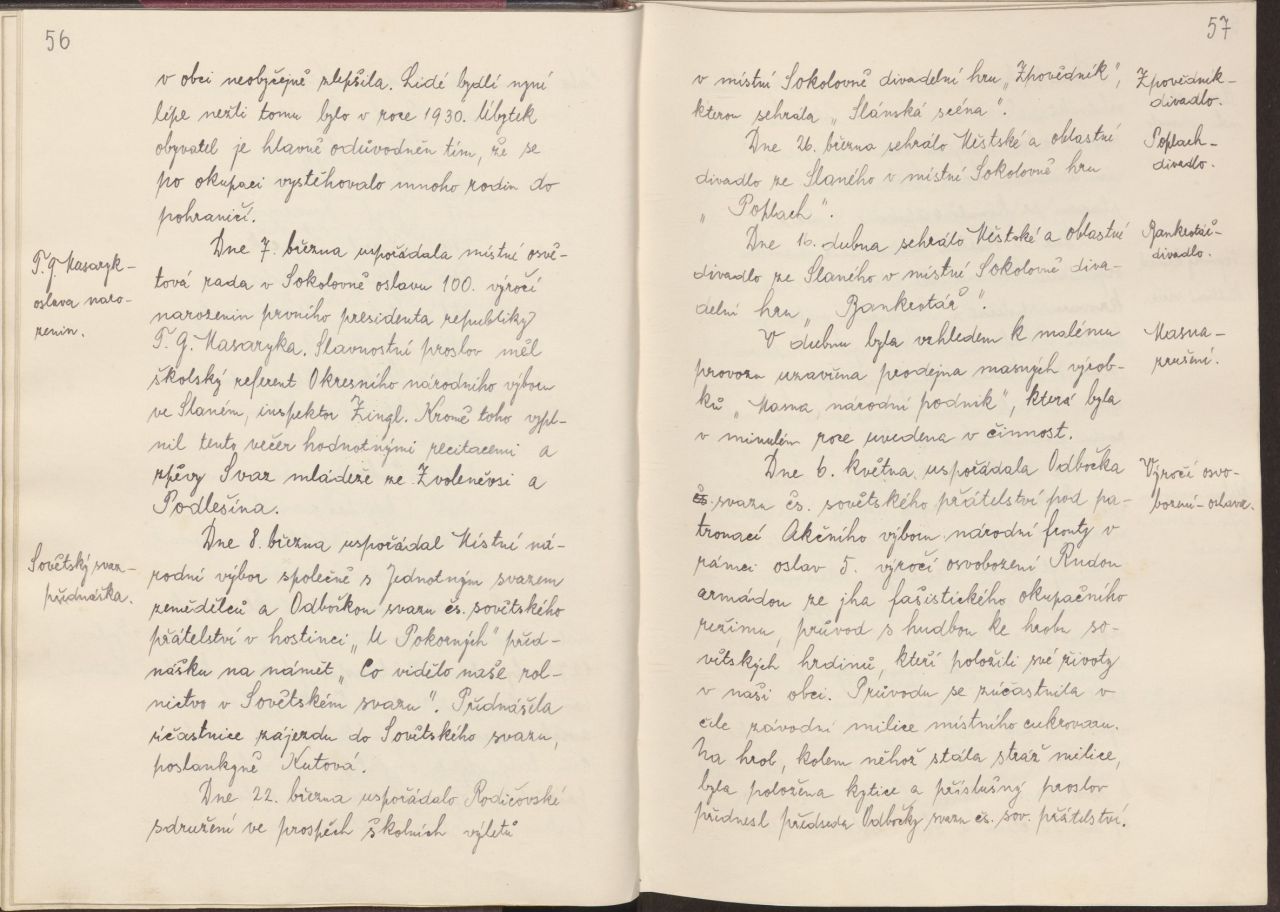 56
v obci neobyčejně zlepšila. Lidé bydlí nyní
lépe nežli tomu bylo v roce 1930. Úbytek
obyvatel je hlavně odůvodněn tím, že se
po okupaci vystěhovalo mnoho rodin do
pohraničí.
T. G. Masaryk -
oslava naro-
zenin.
Dne 7. března uspořádala místní osvě-
tová rada v Sokolovně oslavu 100. výročí
narozenin prvního presidenta republiky
T. G. Masaryka. Slavnostní proslov měl
školský referent Okresního národního výboru
ve Slaném, inspektor Zingl. Kromě toho vypl-
nil tento večer hodnotnými recitacemi a
zpěvy Svaz mládeže ze Zvoleněvsi a
Podlešína.
Sovětský svaz -
přednáška.
Dne 8. března uspořádal Místní ná-
rodní výbor společně s Jednotným svazem
zemědělců a Odbočkou svazu čs. sovětského
přátelství v hostinci „U Pokorných" před-
nášku na námět „Co vidělo naše rol-
nictvo v Sovětském svazu". Přednášela
účastnice zájezdu do Sovětského svazu,
poslankyně Kutová.
Dne 22. března uspořádalo Rodičovské
sdružení ve prospěch školních výletů
57
v místní Sokolovně divadelní hru „Zpovědník",
kterou sehrála „Slánská scéna".
Zpovědník -
divadlo.
Dne 26. března sehrálo Městské a oblastní
divadlo ze Slaného v místní Sokolovně hru
„Poplach".
Poplach -
divadlo.
Dne 16. dubna sehrálo Městské a oblastní
divadlo ze Slaného v místní Sokolovně diva-
delní hru „Bankrotář".
Bankrotář -
divadlo.
V dubnu byla vzhledem k malému
provozu uzavřena prodejna masných výrob-
ků „Masna, národní podnik", která byla
v minulém roce uvedena v činnost.
Masna -
zrušení.
Dne 6. května uspořádala Odbočka
svazu čs. sovětského přátelství pod pa-
tronací Akčního výboru národní fronty v
rámci oslav 5. výročí osvobození Rudou
armádou ze jha fašistického okupačního
režimu, průvod s hudbou ke hrobu so-
větských hrdinů, kteří položili své životy
v naší obci. Průvodu se zúčastnila v
čele závodní milice místního cukrovaru.
Na hrob, kolem něhož stála stráž milice,
byla položena kytice a příslušný proslov
přednesl předseda Odbočky svazu čs. sov. přátelství.
Výročí osvo-
bození - oslava.